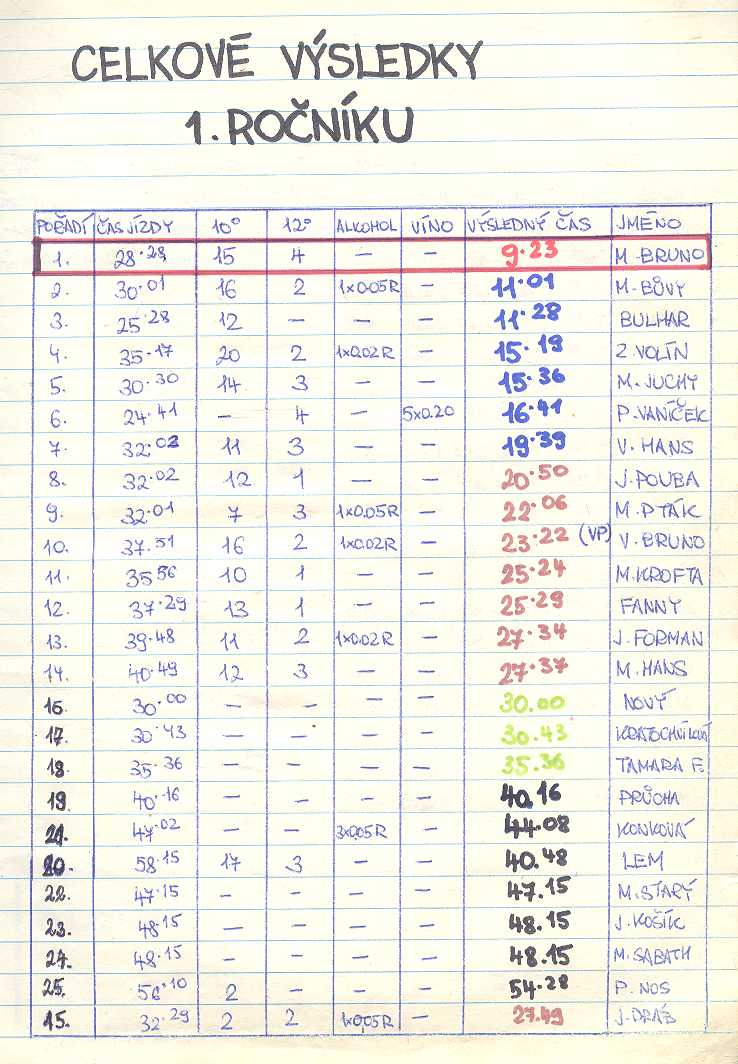 CELKOVÉ VÝSLEDKY
1. ROČNÍKU
POŘADÍ ČAS JÍZDY 10° 12° ALKOHOL VÍNO VÝSLEDNÝ ČAS JMÉNO
1. 28·28 15 4 — — 9·23 M. BRUNO
2. 30·01 16 2 1x0.05R — 11·01 M. BŮVY
3. 25·28 12 — — — 11·28 BULHAR
4. 35·17 20 2 1x0.02R — 15·19 Z. VOLÍN
5. 30·30 14 3 — — 15·36 M. JUCHY
6. 24·41 — 4 — 5x0.20 16·41 P. VANÍČEK
7. 32·02 11 3 — — 19·39 V. HANS
8. 32·02 12 1 — — 20·50 J. POUBA
9. 32·01 7 3 1x0.05R — 22·06 M. PTÁK
10. 37.51 16 2 1x0.02R — 23·22 (VP) V. BRUNO
11. 35 56 10 1 — — 25·24 M. KROFTA
12. 37·29 13 1 — — 25·29 FANNY
13. 39·48 11 2 1x0.02R — 27·34 J. FORMAN
14. 40·49 12 3 — — 27·37 M. HANS
16. 30·00 — — — — 30.00 NOVÝ
17. 30·43 — — — — 30.43
18. 35·36 — — — — 35.36 TAMARA F.
19. 40·16 — — — — 40.16 PRŮCHA
21. 47·02 — — 3x0.05R — 44·08 KONKOVÁ
20. 58·15 17 3 — — 40.48 LEM
22. 47·15 — — — — 47.15 M. STARÝ
23. 48·15 — — — — 48.15 J. KOŠÍK
24. 48·15 — — — — 48.15 M. SABATH
25. 56·10 2 — — — 54·28 P. NOS
15. 32·29 2 2 1x0.05R — 27.49 J. DRÁB